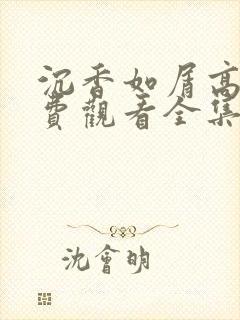 沉香如屑高
費觀看全集
沈會明